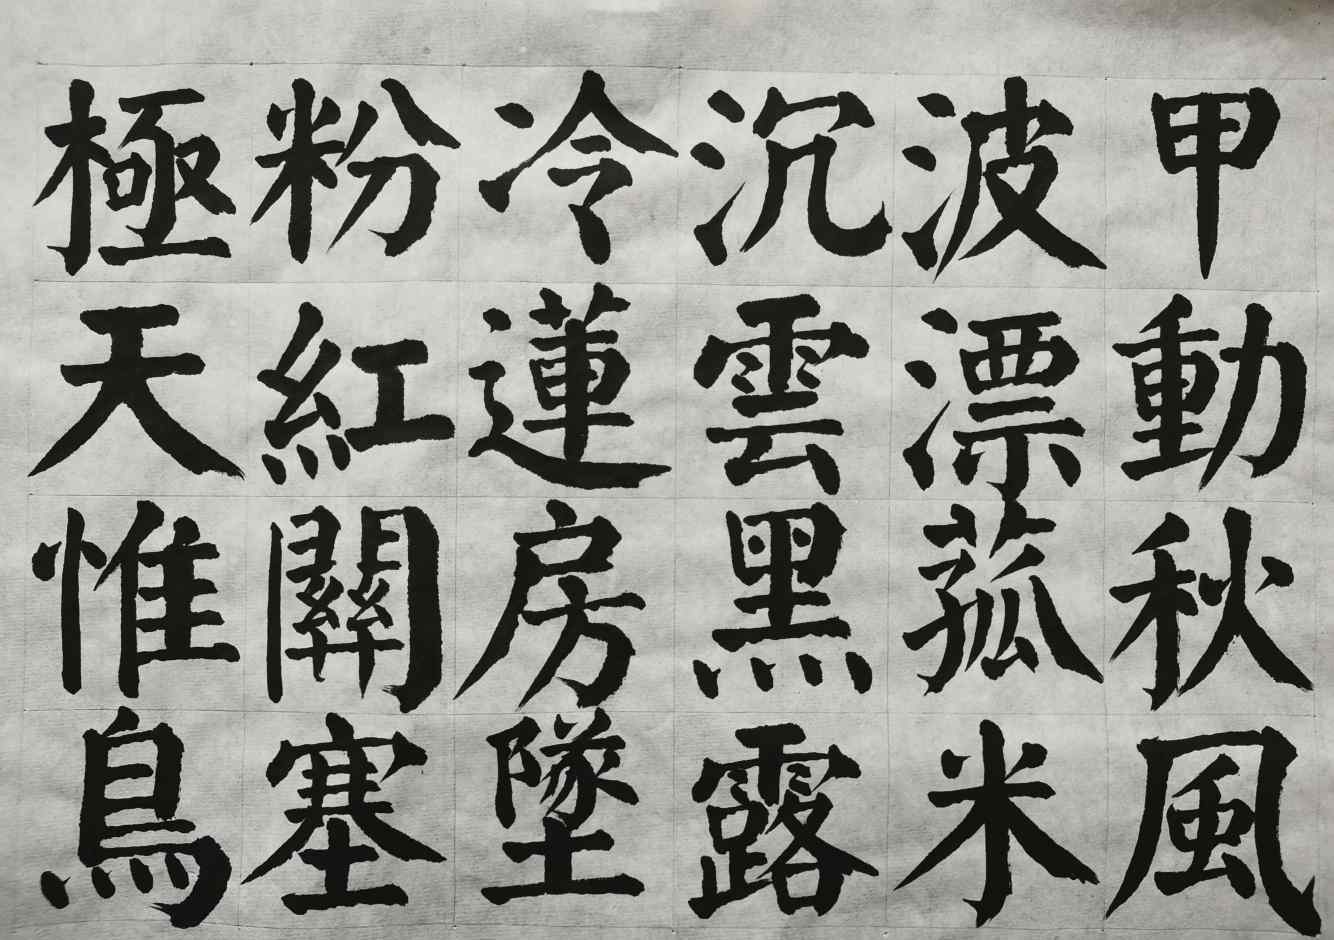 甲動秋風
波漂菰米
沉雲黑露
冷蓮房墜
粉紅關塞
極天惟鳥